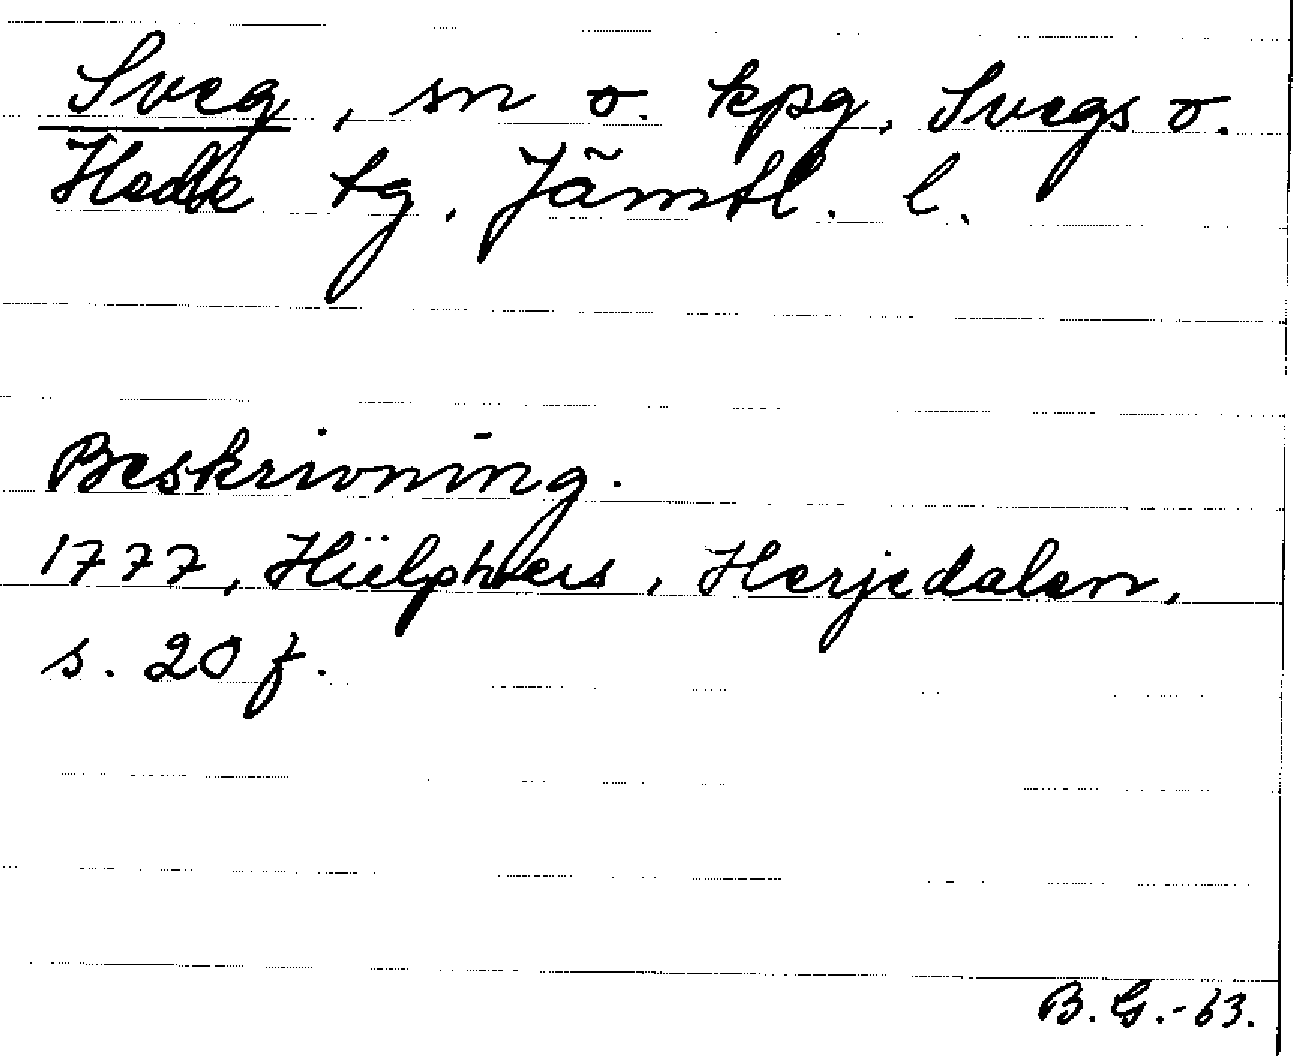 Sveg, sn o. kpg, Svegs o.
Hede tg, Jämtl. l.
Beskrivning.
1777, Hülphers, Herjedalen,
s. 20 f.
B. G. - 63.